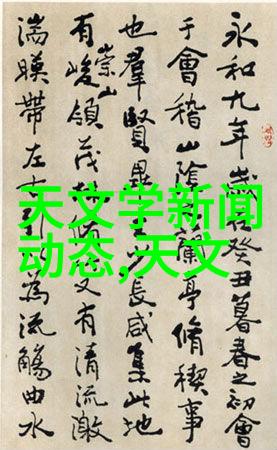 永和九年歲在癸丑暮春之初會
于會稽山陰蘭亭脩稧事
也羣賢畢少長咸集此地
有崇山峻領茂林脩又有清流激
湍暎帶左右引為流觴曲水
天文学新闻
动态,天文